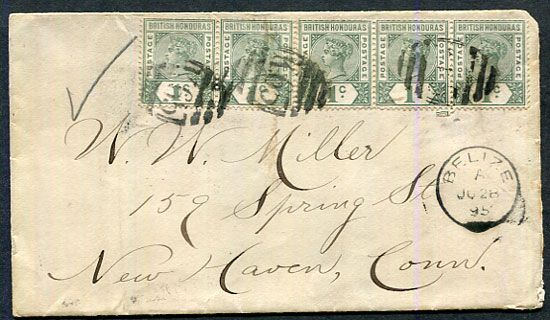 BRITISH HONDURAS BRITISH HONDURAS BRITISH HONDURAS BRITISH HONDURAS BRITISH HONDURAS
POSTAGE POSTAGE POSTAGE POSTAGE POSTAGE POSTAGE POSTAGE POSTAGE POSTAGE POSTAGE
1c
W. W. Miller
159 Spring St
New Haven, Conn.
BELIZE
A
JU 28
95